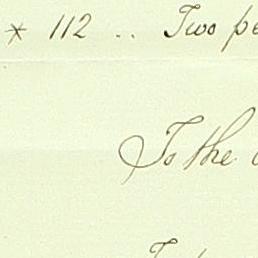 * 112 .. Two
To the